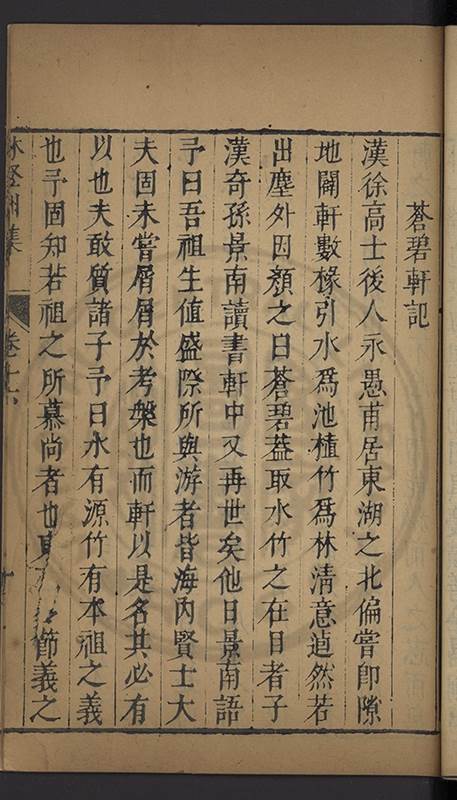 蒼碧軒記
漢徐高士後人永愚甫居東湖之北偏嘗即隙
地闢軒數椽引水爲池植竹爲林清意逌然若
出塵外因顏之曰蒼碧蓋取水竹之在目者子
漢奇孫景南讀書軒中又再世矣他日景南語
予曰吾祖生値盛際所與游者皆海內賢士大
夫固未嘗屑屑於考槃也而軒以是名其必有
以也夫敢質諸子予曰水有源竹有本祖之義
也予固知若祖之所慕尚者也
節義之
林登州集
卷十六